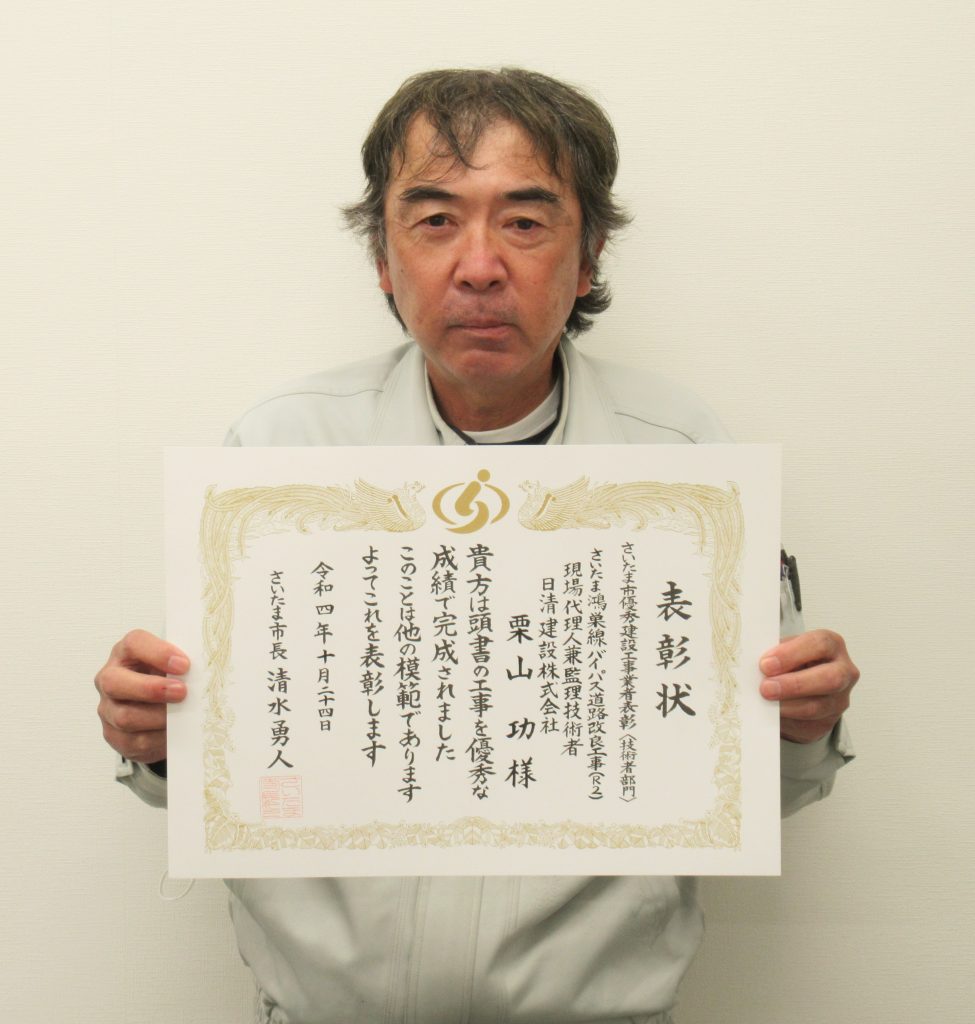 表彰状
さいたま市優秀建設工事業者表彰〈技術者部門〉
さいたま鴻巣線バイパス道路改良工事(R2)
現場代理人兼監理技術者
日清建設株式会社
栗山功様
貴方は頭書の工事を優秀な
成績で完成されました
このことは他の模範であります
よってこれを表彰します
令和四年十月二十四日
さいたま市長 清水勇人